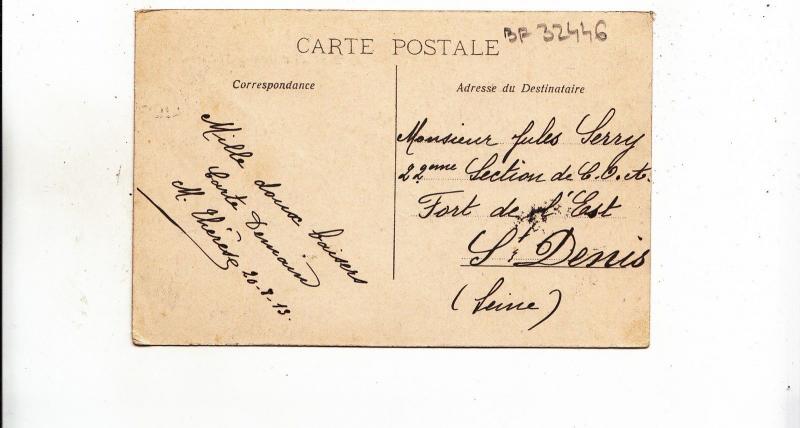 CARTE POSTALE
BF 32446
Correspondance
Adresse du Destinataire
Mille doux baisers
Carte Demain
M. Thérèse 20-8-13.
Monsieur Jules Serry
22eme Section de C.O.A.
Fort de l'Est
St Denis
(Seine)